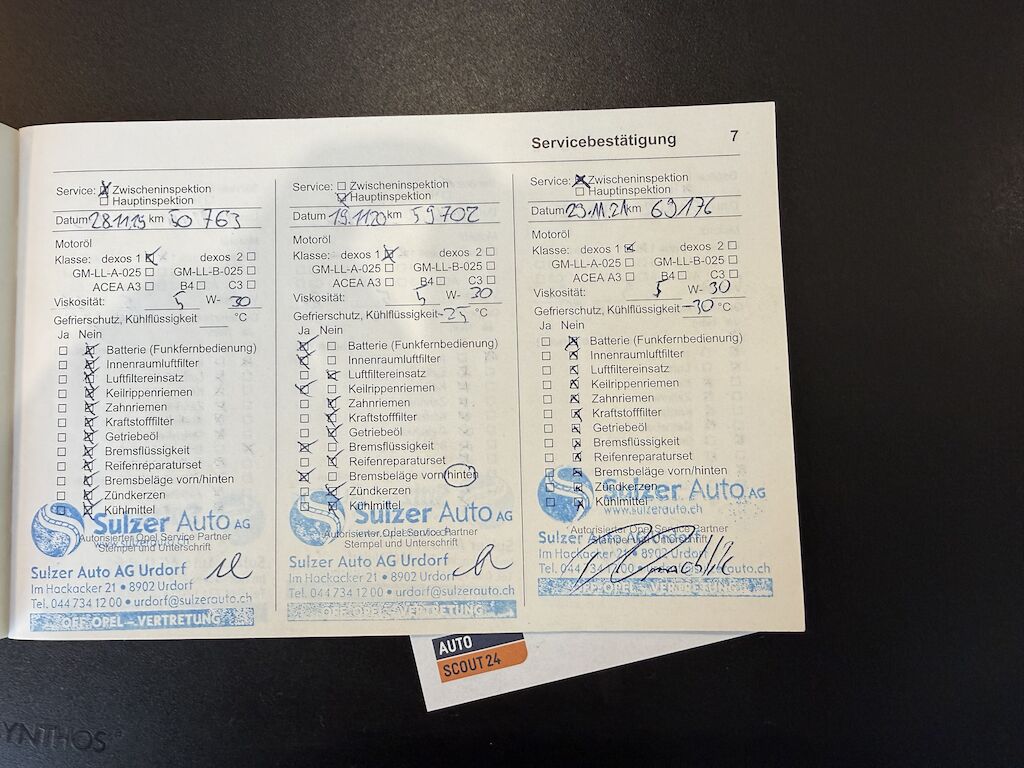 Servicebestätigung 7
Service: Zwischeninspektion
Hauptinspektion
Datum 28.11.19 km 50 763
Motoröl
Klasse: dexos 1 dexos 2
GM-LL-A-025 GM-LL-B-025
ACEA A3 B4 C3
Viskosität: 5 W- 30
Gefrierschutz, Kühlflüssigkeit °C
Ja Nein
Batterie (Funkfernbedienung)
Innenraumluftfilter
Luftfiltereinsatz
Keilrippenriemen
Zahnriemen
Kraftstofffilter
Getriebeöl
Bremsflüssigkeit
Reifenreparaturset
Bremsbeläge vorn/hinten
Zündkerzen
Kühlmittel
Sulzer Auto AG
Autorisierter Opel Service Partner
Stempel und Unterschrift
Sulzer Auto AG Urdorf
Im Hackacker 21 • 8902 Urdorf
Tel. 044 734 12 00 • urdorf@sulzerauto.ch
OFF. OPEL-VERTRETUNG
Service: Zwischeninspektion
Hauptinspektion
Datum 19.11.20 km 59702
Motoröl
Klasse: dexos 1 dexos 2
GM-LL-A-025 GM-LL-B-025
ACEA A3 B4 C3
Viskosität: 5 W- 30
Gefrierschutz, Kühlflüssigkeit -25 °C
Ja Nein
Batterie (Funkfernbedienung)
Innenraumluftfilter
Luftfiltereinsatz
Keilrippenriemen
Zahnriemen
Kraftstofffilter
Getriebeöl
Bremsflüssigkeit
Reifenreparaturset
Bremsbeläge vorn/hinten
Zündkerzen
Kühlmittel
Sulzer Auto AG
Autorisierter Opel Service Partner
Stempel und Unterschrift
Sulzer Auto AG Urdorf
Im Hackacker 21 • 8902 Urdorf
Tel. 044 734 12 00 • urdorf@sulzerauto.ch
OFF. OPEL-VERTRETUNG
Service: Zwischeninspektion
Hauptinspektion
Datum 29.11.21 km 69176
Motoröl
Klasse: dexos 1 dexos 2
GM-LL-A-025 GM-LL-B-025
ACEA A3 B4 C3
Viskosität: 5 W- 30
Gefrierschutz, Kühlflüssigkeit -30 °C
Ja Nein
Batterie (Funkfernbedienung)
Innenraumluftfilter
Luftfiltereinsatz
Keilrippenriemen
Zahnriemen
Kraftstofffilter
Getriebeöl
Bremsflüssigkeit
Reifenreparaturset
Bremsbeläge vorn/hinten
Zündkerzen
Kühlmittel
Sulzer Auto AG
www.sulzerauto.ch
Autorisierter Opel Service Partner
Sulzer Auto AG Urdorf
Im Hackacker 21 • 8902 Urdorf
Tel. 044 734 12 00
OFF. OPEL-VERTRETUNG
AUTO
SCOUT24
YNTHOS